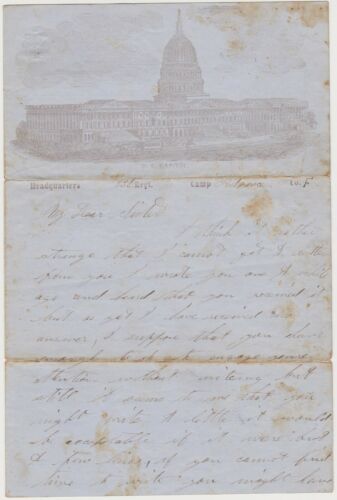 U.S. CAPITOL
Headquarters Regt. Camp Co. F
My Dear Sister
I think it rather
strange that I cannot get a letter
from you I wrote you one a while
ago and heard that you received it
but as yet I have received no
answer, I suppose that you have
enough to engage your
attention without writing but
still it seems to me that you
might write a little it would
be exceptable if it were but
a few lines, if you cannot find
time to write you might have